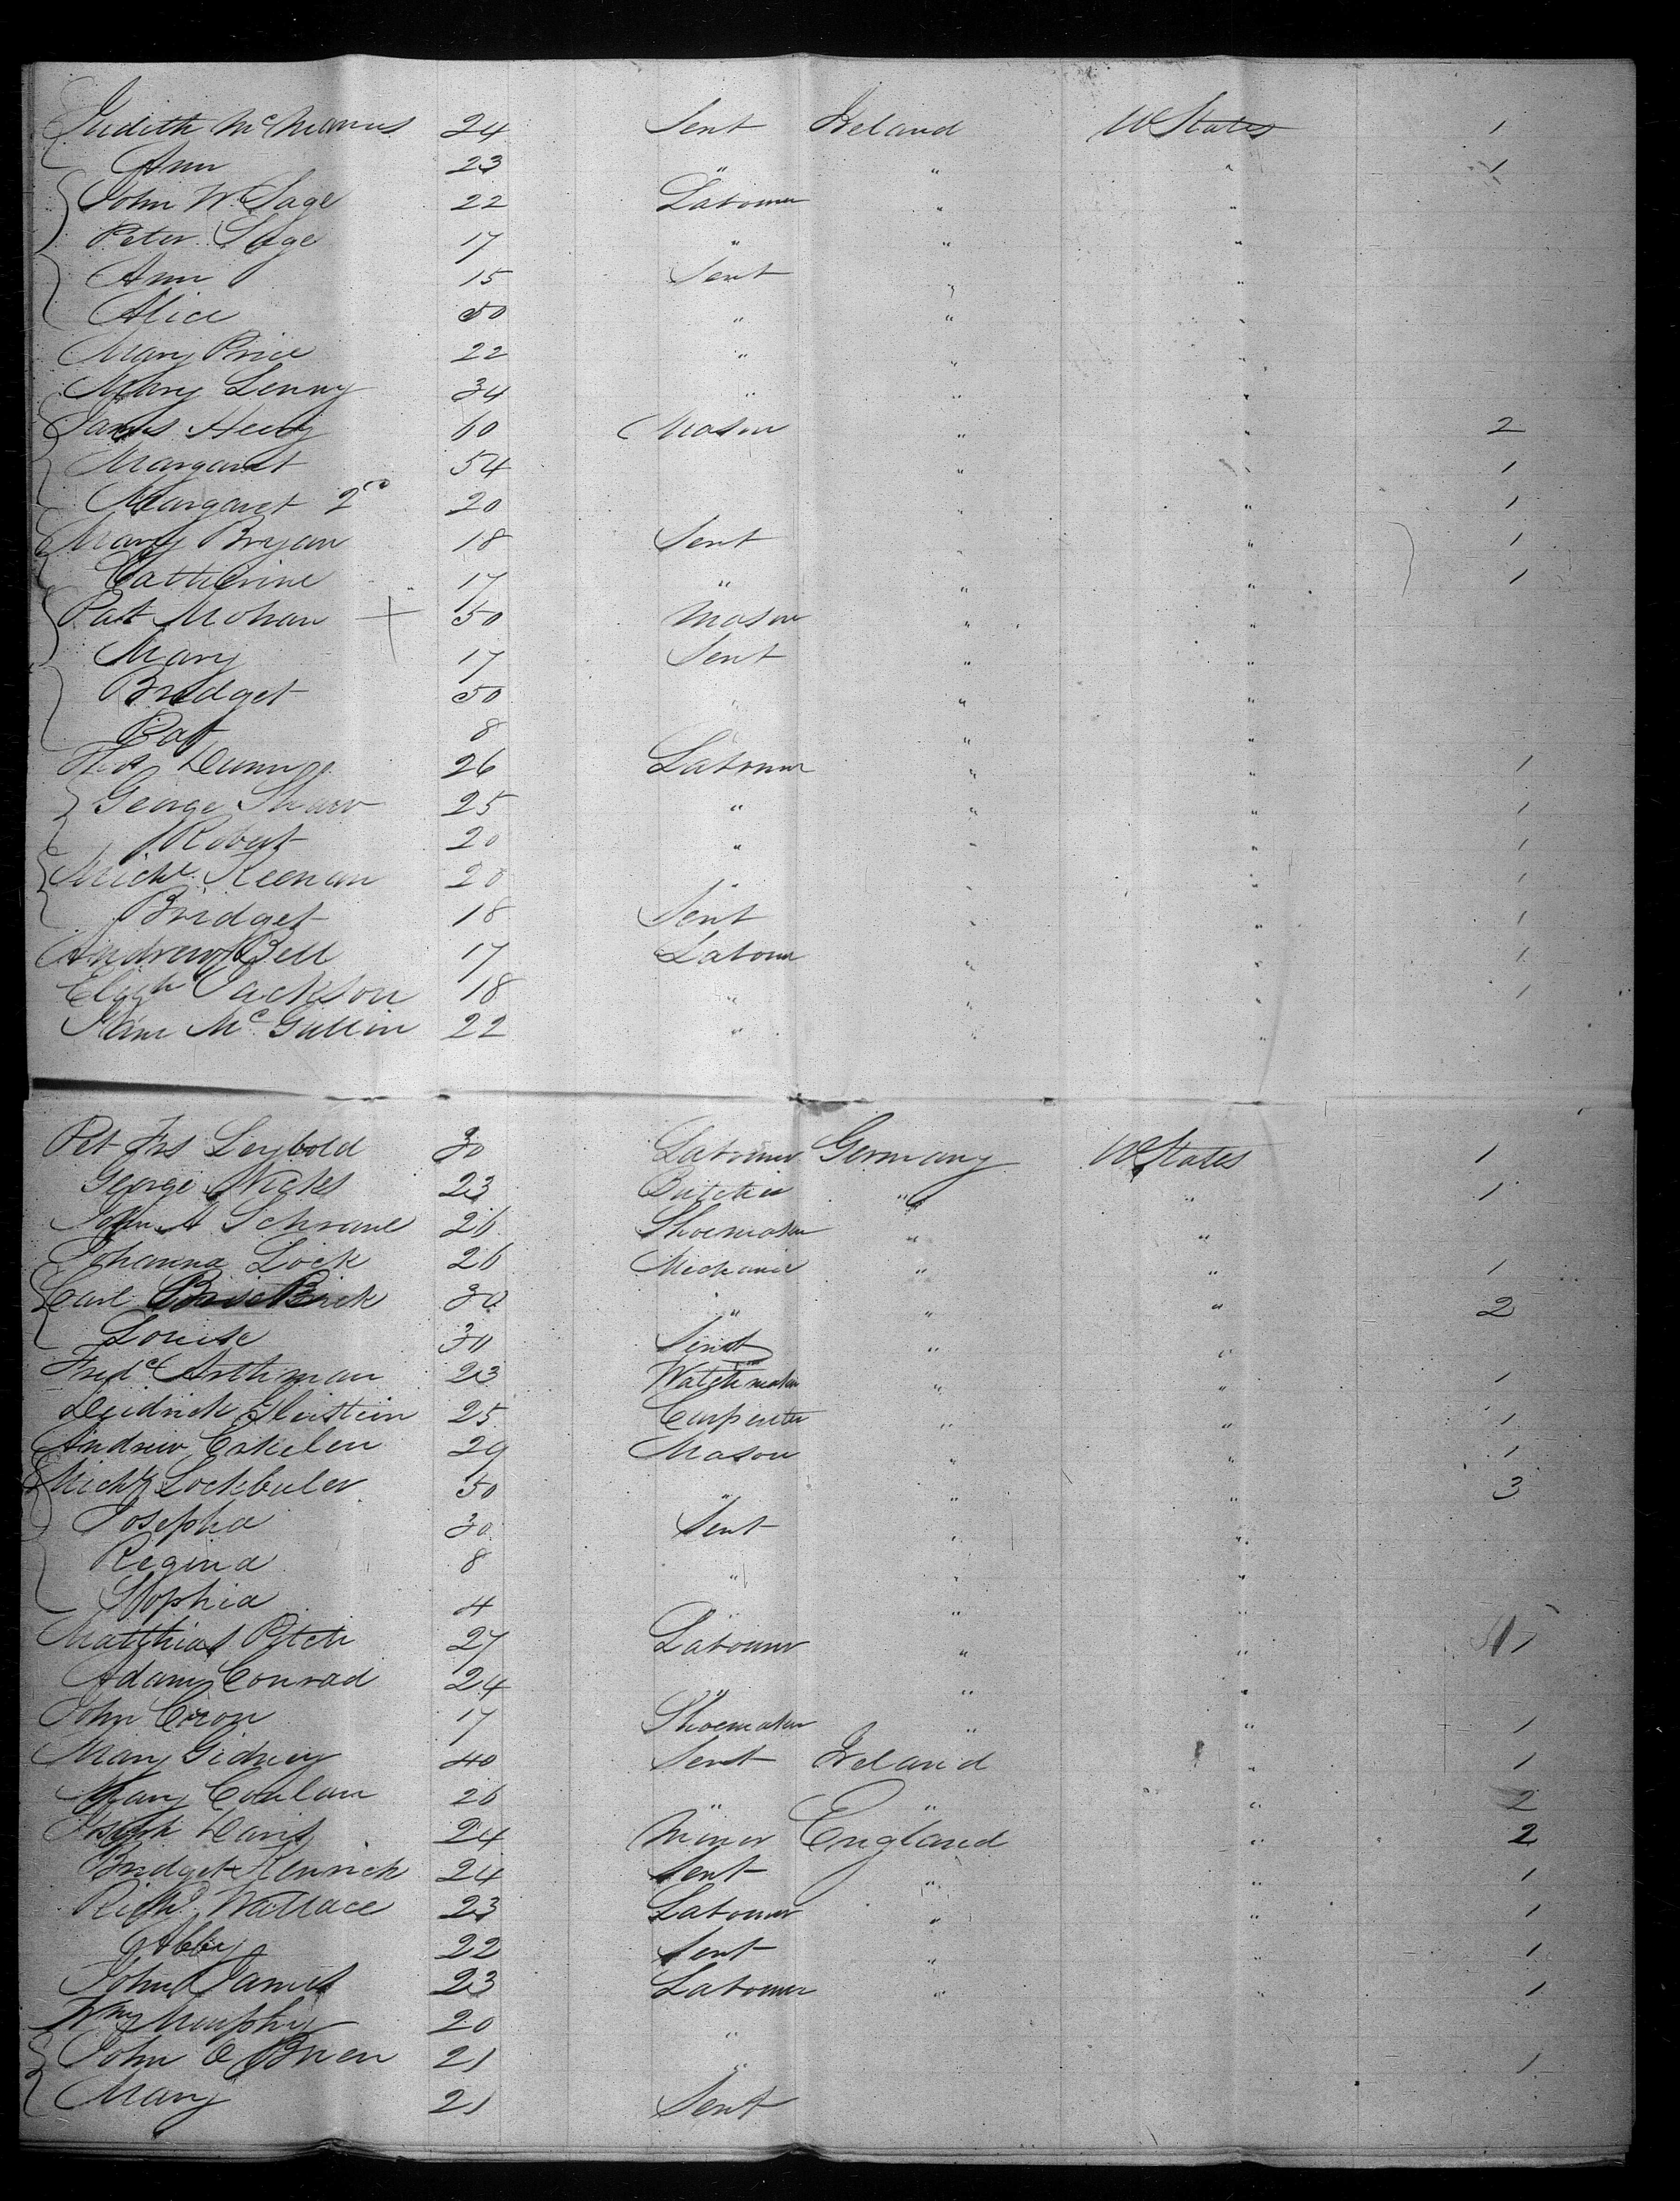 Judith McManus 24 Sert Ireland U States 1
Ann 23 " " " 1
John W. Sage 22 Labourer " "
Peter Sage 17 " " "
Ann 15 Sert " "
Alice 50 " " "
Mary Price 22 " " "
Mary Lenny 34 " " "
James Heely 60 Mason " " 2
Margaret 54 " " 1
Margaret 2nd 20 " " 1
Mary Bryan 18 Sert " " 1
Catherine 17 " " " 1
Pat Mohan + 50 Mason " "
Mary 17 Sert " "
Bridget 50 " " "
Pat 8 " "
Thos Dunn 26 Labourer " " 1
George Shaw 25 " " " 1
Robert 20 " " " 1
Michl Keenan 20 " " " 1
Bridget 18 Sert " " 1
Andrew Bell 17 Labour " " 1
Elizth Jackson 18 " " " 1
McGullin 22 " " "
Pet Frs Leybold 30 Labourer Germany U States 1
George Nicks 23 Butcher " " 1
John A Schrame 26 Shoemaker " "
Johanna Lock 26 Mechanic " " 1
Carl Brick 30 " " " 2
Louise 30 Sert " "
Fredc Arthman 23 Watchmaker " " 1
Deidrick Gleistein 25 Carpenter " " 1
Andrew Eskelen 29 Mason " " 1
Michl Lockbuler 50 " " " 3
Josepha 30 Sert " "
Regina 8 " " "
Sophia 4 " "
Matthias Petch 27 Labourer " " 1
Adam Conrad 24 " " "
John Cron 17 Shoemaker " " 1
Mary Gidney 40 Sert Ireland " 1
Mary Conlan 26 " " " 2
Joseph Davis 24 Miner England " 2
Bridget Kenrick 24 Sert " " 1
Richd Wallace 23 Labourer " " 1
Abby 22 Sert " " 1
John James 23 Labourer " " 1
Wm Murphy 20 "
John O Brien 21 " 1
Mary 21 Sert